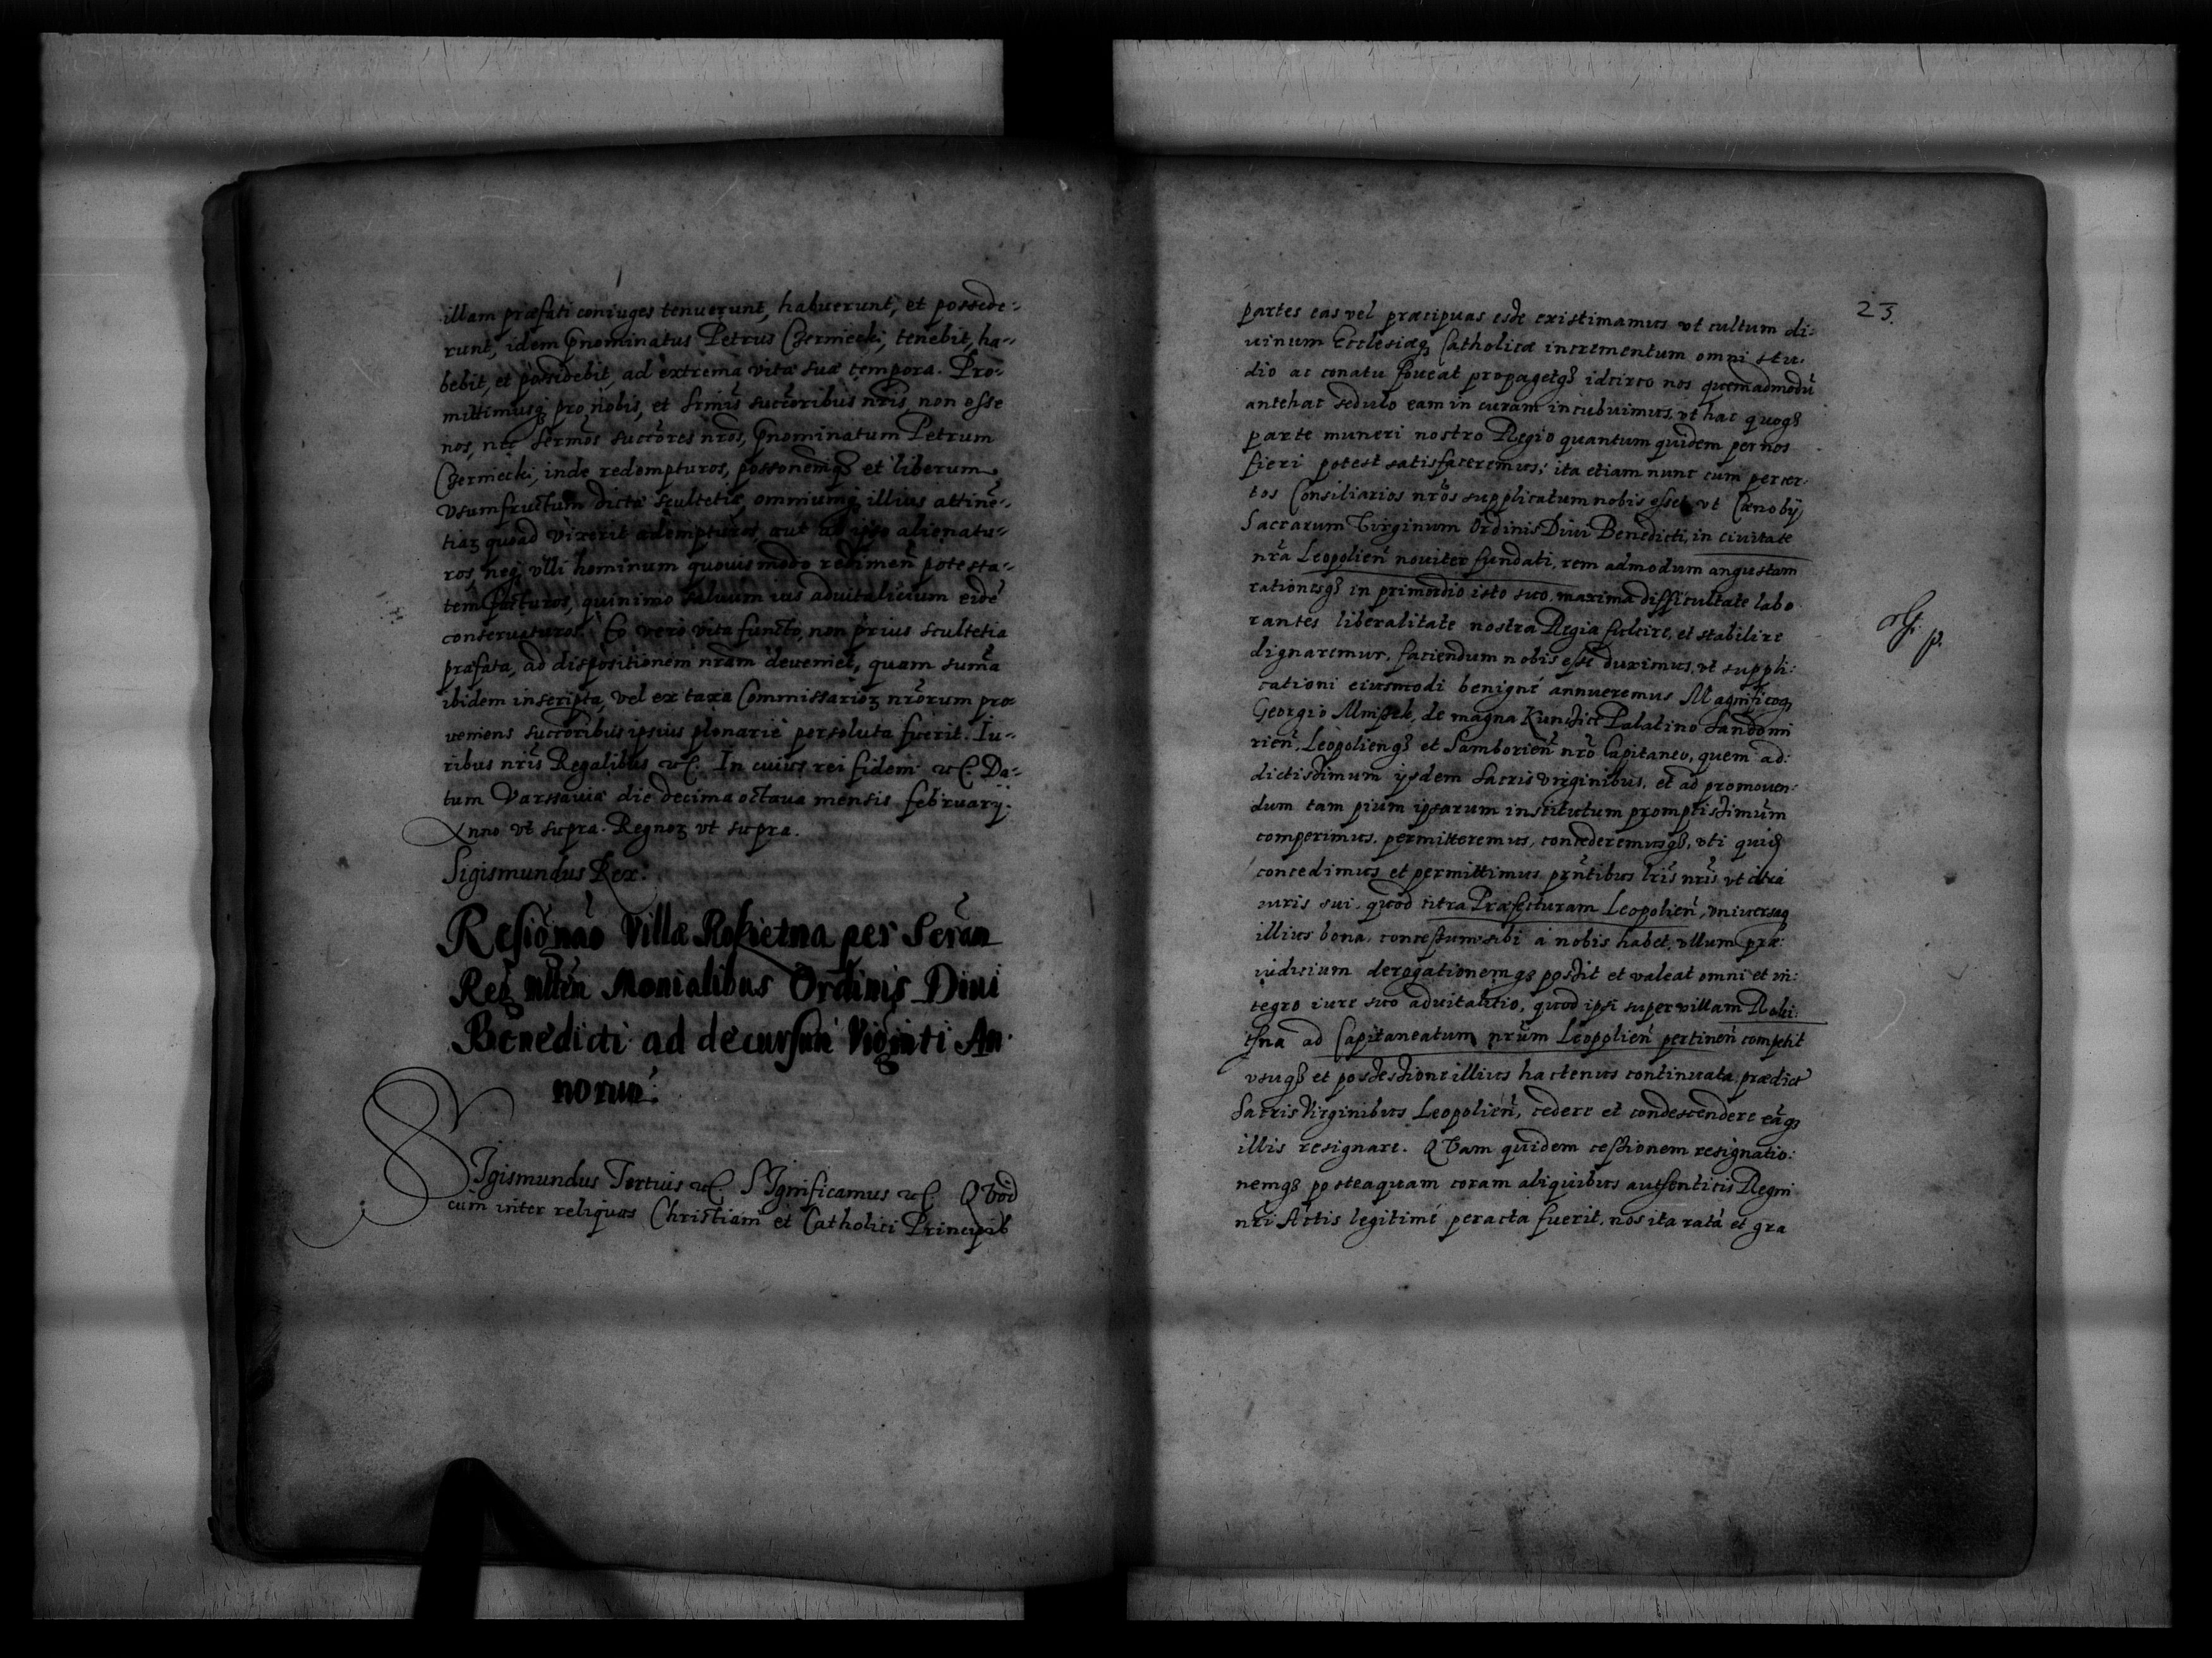 illam præfati coniuges tenuerunt, habuerunt, et possede-
runt, idem Prnominatus Petrus Czerniecki, tenebit, ha-
bebit, et possidebit, ad extrema vitæ suæ tempora. Pro-
mittimusq pro nobis, et Srmis succoribus nris, non esse
nos, nec Sermos succores nros, Prnominatum Petrum
Czerniecki, inde redempturos, possionemq et liberum
vsumfructum dictæ scultetiæ, omniumq illius attine-
tiaz quoad vixerit adempturos, aut ab ipso alienatu-
ros, neq vlli hominum quouis modo redimen potesta-
tem facturos, quinimo saluum ius aduitalicium eide
conseruaturos. Eo vero vita functo, non prius scultetia
præfata, ad dispositionem nram deueniet, quam suma
ibidem inscripta, vel ex taxa Commissarioz nrorum pro-
ueniens succoribus ipsius plenarie persoluta fuerit. Iu-
ribus nris Regalibus etc. In cuius rei fidem etc. Da-
tum Varssauiæ die decima octaua mensis februarij.
Anno vt supra. Regnoz vt supra.
Sigismundus Rex.
Resignao Villæ Rokietna per Seran
Reg Monialibus Ordinis Diui
Benedicti ad decursum Viginti An-
norum.
SIgismundus Tertius etc. SIgnificamus etc. QVod
cum inter reliquas Christiani et Catholici Principis
23.
partes eas vel præcipuas esse existimamus vt cultum di-
uinum Ecclesiæq Catholicæ incrementum omni stu-
dio ac conatu foueat propagetq idcirco nos quemadmodu
antehac sedulo eam in curam incubuimus, vt hac quoq
parte muneri nostro Regio quantum quidem per nos
fieri potest satisfaceremus; ita etiam nunc cum per cer-
tos Consiliarios nros supplicatum nobis esset vt Cænobij
Sacrarum Virginum Ordinis Diui Benedicti, in ciuitate
nra Leopolien nouiter fundati, rem admodum angustam
rationesq in primordio isto suo maxima difficultate labo
rantes liberalitate nostra Regia fulcire, et stabilire
dignaremur, faciendum nobis esse duximus, vt suppli-
cationi eiusmodi benigne annueremus Magnificoq
Georgio Mniszek, de magna Kunczice Palatino Sandomi
rien, Leopolienq et Samborien nro Capitaneo, quem ad-
dictissimum ijsdem Sacris virginibus, et ad promouen-
dum tam pium ipsarum institutum promptissimum
comperimus, permitteremus, concederemusq, vti quidem
concedimus et permittimus prntibus lris nris vt citra
iuris sui, quod citra Præfecturam Leopolien, vniversaq
illius bona, concessum sibi a nobis habet, vllum præ-
iudicium derogationemq possit et valeat omni et in-
tegro iure suo aduitalitio, quod ipsi super villam Roki-
tna ad Capitaneatum nrum Leopolien pertinen competit
vsuq et possessione illius hactenus continuata, prædict
Sacris Virginibus Leopolien, cedere et condescendere eaq
illis resignare. QVam quidem cessionem resignatio-
nemq posteaquam coram aliquibus authenticis Regni
nri Actis legitime peracta fuerit, nos ita rata et gra